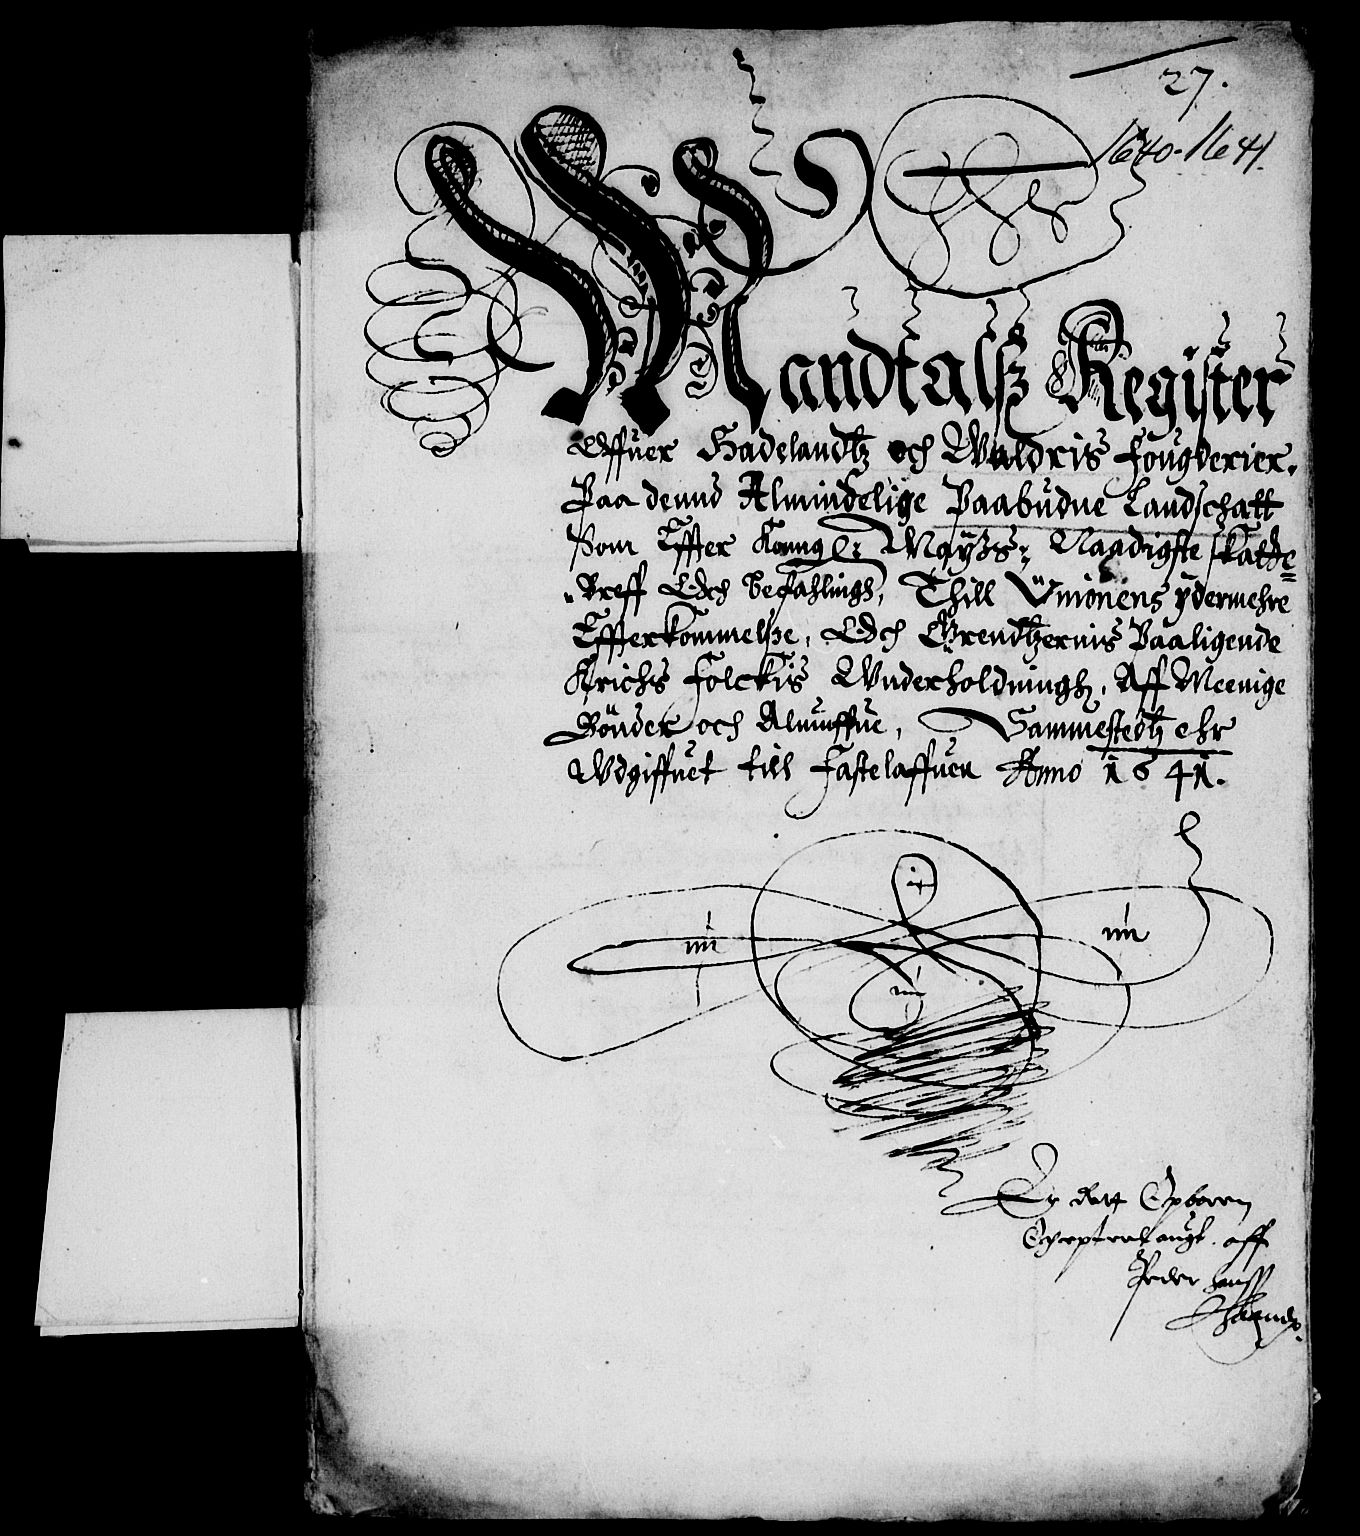 27.
1640-1641.
Mandtalsz Register
Offuer Hadelandtz och Waldris fougderier.
Paa dend Almindelige Paabudne Landschatt
Som Effter Konng: May:ts: Naadigste skatte
Breff Och befahlings, Thill Unionens ydermehre
Effterkommelsze, Och Grendtzernis Paaligende
Krichs Folckis Wnderholdningh, Aff Meenige
Bönder och Almuffue, Sammestedtz ehr
Wdgiffuet till Fastelaffuen Anno 1641.
Peder